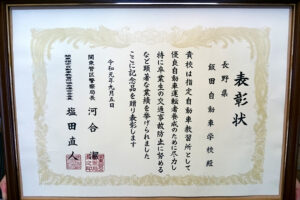 表彰状
長野県
飯田自動車学校殿
貴校は指定自動車教習所として
優良自動車運転者養成のために尽力し
特に卒業生の交通事故防止に努める
など顕著な業績を挙げられました
ここに記念品を贈り表彰します
令和元年九月五日
関東管区警察局長 河合潔
塩田直人